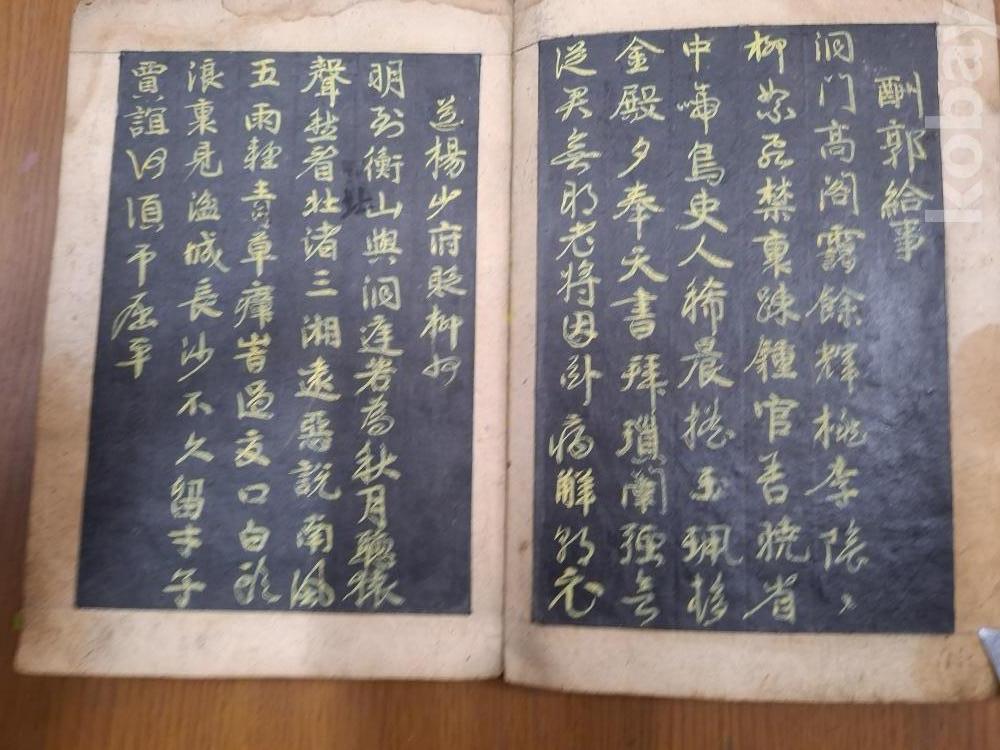 酬郭給事
洞门高阁靄餘輝桃李陰ゝ
柳絮飛禁裏踈鍾官舍曉省
中啼鳥吏人稀晨搖玉珮趍
金殿夕奉天書拜瑣闈强
從君無那老將因卧病解朝衣
送楊少府貶郴州
明到衡山與洞庭若為秋月聽猿
聲愁看北渚三湘遠惡說南風
五兩輕青草瘴旹過夏口白頭
浪裏見湓城長沙不久留才子
賈誼何須弔屈平
kobay